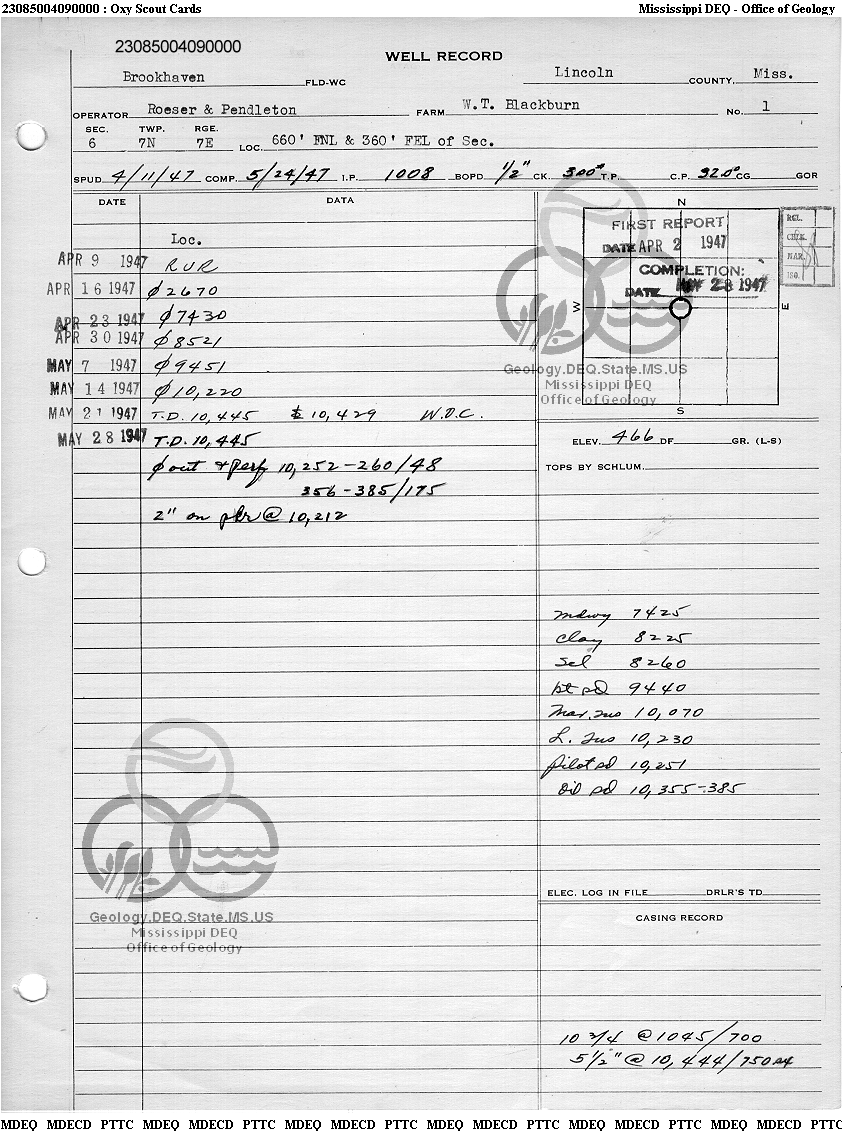 23085004090000 : Oxy Scout Cards Mississippi DEQ - Office of Geology
23085004090000
WELL RECORD
Brookhaven FLD-WC Lincoln COUNTY, Miss.
OPERATOR Roeser & Pendleton FARM W.T. Blackburn No. 1
SEC. TWP. RGE.
6 7N 7E LOC. 660' FNL & 360' FEL of Sec.
SPUD 4/11/47 COMP. 5/24/47 I.P. 1008 BOPD 1/2" CK. 300# T.P. C.P. 320# CG GOR
DATE DATA
Loc.
APR 9 1947 RUR
APR 16 1947 ⌀ 2670
APR 23 1947 ⌀ 7430
APR 30 1947 ⌀ 8521
MAY 7 1947 ⌀ 9451
MAY 14 1947 ⌀ 10,220
MAY 21 1947 T.D. 10,445 10,429 W.O.C.
MAY 28 1947 T.D. 10,445
⌀ out & Perf 10,252-260/48
356-385/175
2" on pkr @ 10,212
N
FIRST REPORT
DATE APR 2 1947
COMPLETION:
DATE MAY 28 1947
W E
S
REL.
CHK.
MAR.
ISO.
Geology.DEQ.State.MS.US
Mississippi DEQ
Office of Geology
ELEV. 466 DF GR. (L-S)
TOPS BY SCHLUM.
mdwy 7425
Clay 8225
Sel 8260
9440
Mar. Tus 10,070
L. Tus 10,230
Pilot sd 10,251
Oil sd 10,355-385
ELEC. LOG IN FILE DRLR'S TD
CASING RECORD
10 3/4 @ 1045/700
5 1/2" @ 10,444/750
Geology.DEQ.State.MS.US
Mississippi DEQ
Office of Geology
MDEQ MDECD PTTC MDEQ MDECD PTTC MDEQ MDECD PTTC MDEQ MDECD PTTC MDEQ MDECD PTTC MDEQ MDECD PTTC